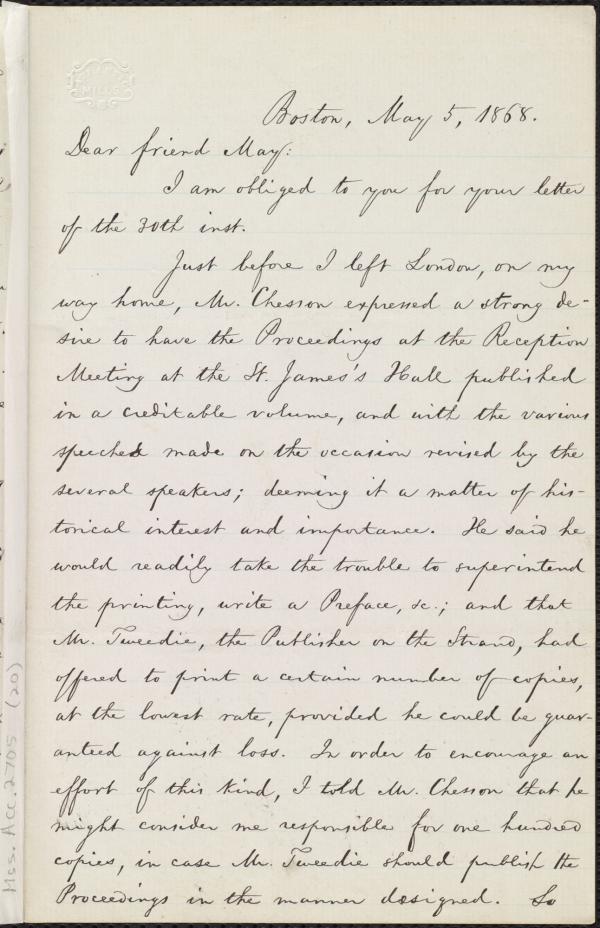 MILLS
Boston, May 5, 1868.
Dear friend May:
I am obliged to you for your letter
of the 30th inst.
Just before I left London, on my
way home, Mr. Chesson expressed a strong de-
sire to have the Proceedings at the Reception
Meeting at the St. James's Hall published
in a creditable volume, and with the various
speeches made on the occasion revised by the
several speakers; deeming it a matter of his-
torical interest and importance. He said he
would readily take the trouble to superintend
the printing, write a Preface, &c.; and that
Mr. Tweedie, the Publisher on the Strand, had
offered to print a certain number of copies,
at the lowest rate, provided he could be guar-
anteed against loss. In order to encourage an
effort of this kind, I told Mr. Chesson that he
might consider me responsible for one hundred
copies, in case Mr. Tweedie should publish the
Proceedings in the manner designed. So
Mss. Acc. 2705 (20)